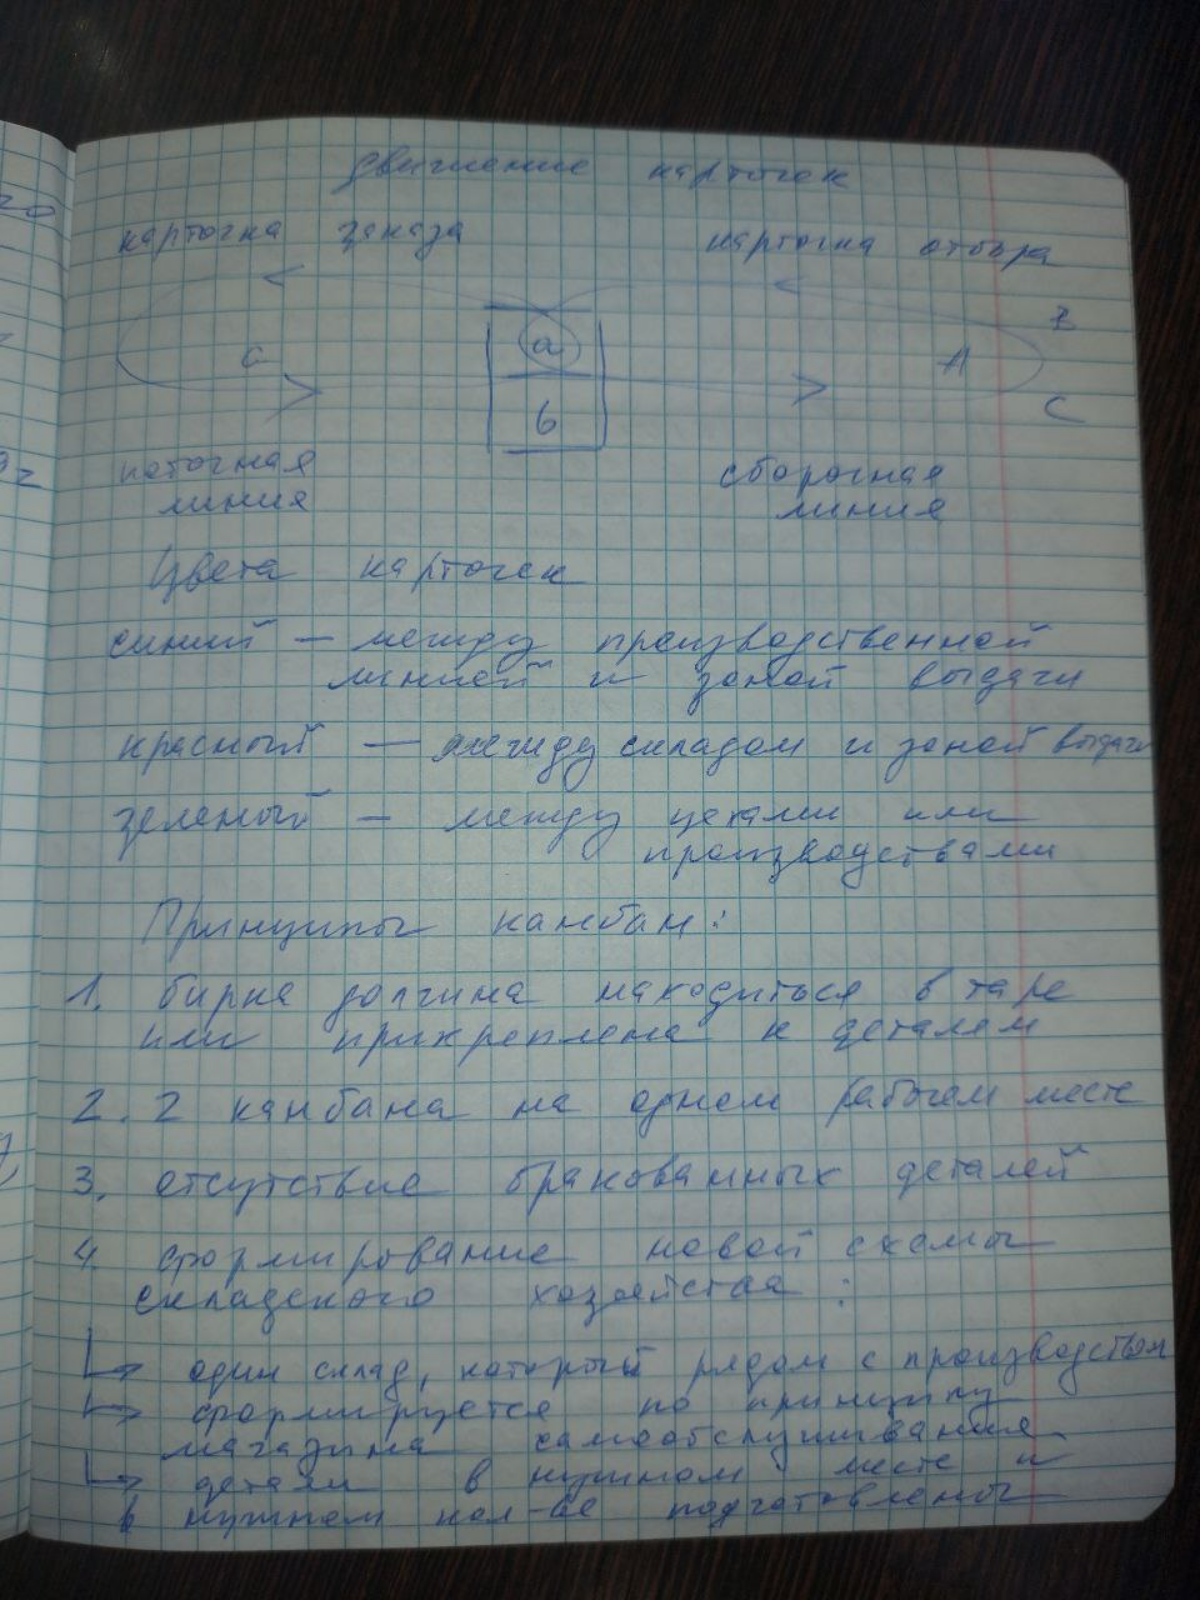 движение карточек
карточка заказа карточка отбора
В
а А
С
б
поточная сборочная
линия линия
Цвета карточек
синий — между производственной
линией и зоной выдачи
красный — между складом и зоной выдачи
зеленый — между цехами или
производствами
Принципы канбан:
1. бирка должна находиться в таре
или прикреплена к деталям
2. 2 канбана на одном рабочем месте
3. отсутствие бракованных деталей
4. формирование новой схемы
складского хозяйства:
один склад, который рядом с производством
формируется по принципу
магазина самообслуживания
детали в нужном месте и
в нужном кол-ве подготовлены